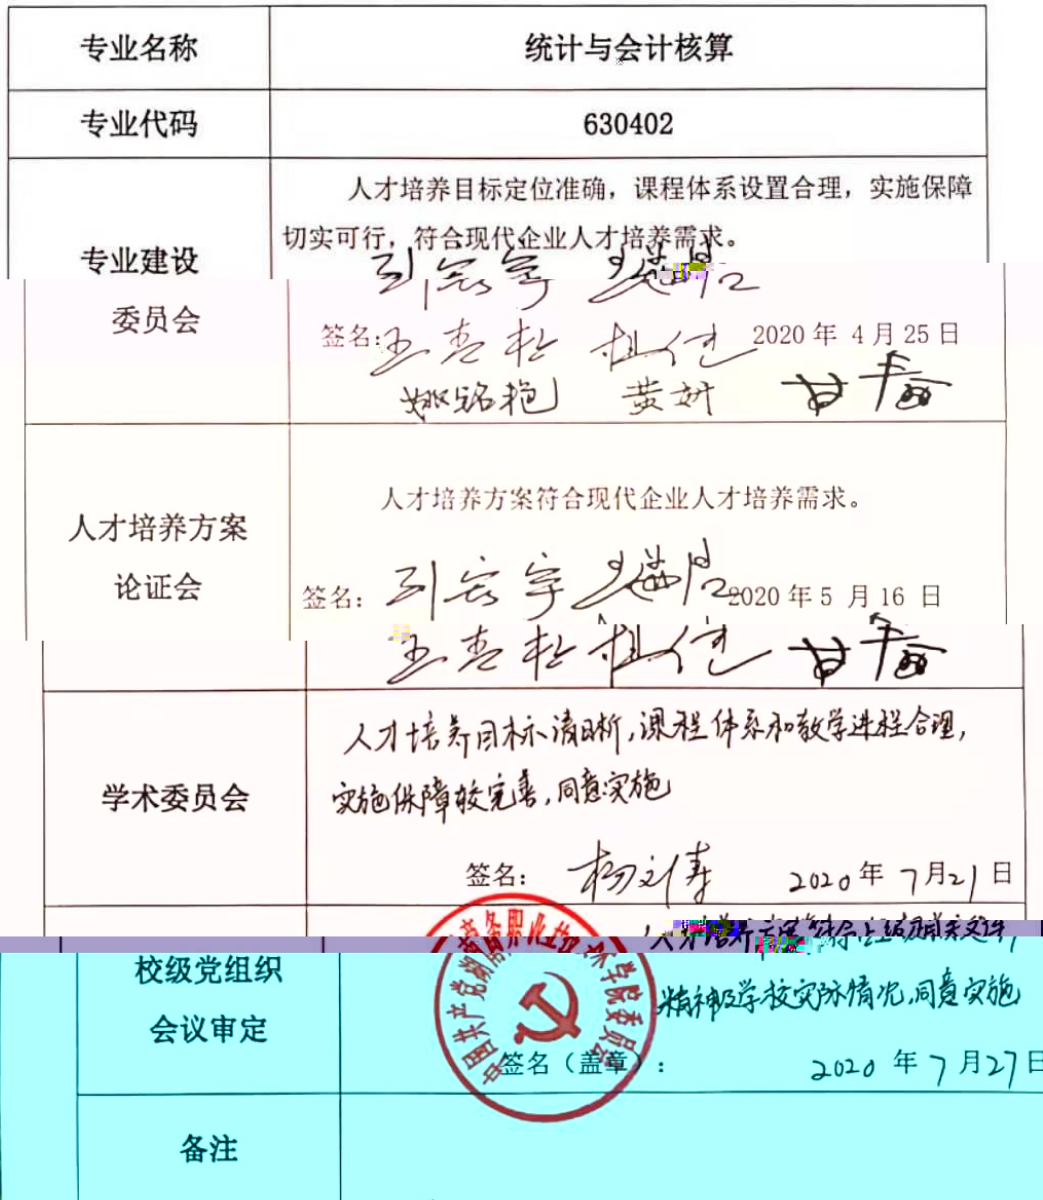 专业名称
统计与会计核算
专业代码
630402
专业建设
委员会
人才培养目标定位准确，课程体系设置合理，实施保障
切实可行，符合现代企业人才培养需求。
签名：
2020 年 4 月 25 日
黄妍
人才培养方案
论证会
人才培养方案符合现代企业人才培养需求。
签名：
2020 年 5 月 16 日
学术委员会
人才培养目标清晰，课程体系和教学进程合理，
实施保障较完善，同意实施
签名：
2020 年 7 月 21 日
校级党组织
会议审定
人才培养方案符合上级相关文件
精神及学校实际情况，同意实施
签名（盖章）：
2020 年 7 月 27 日
备注